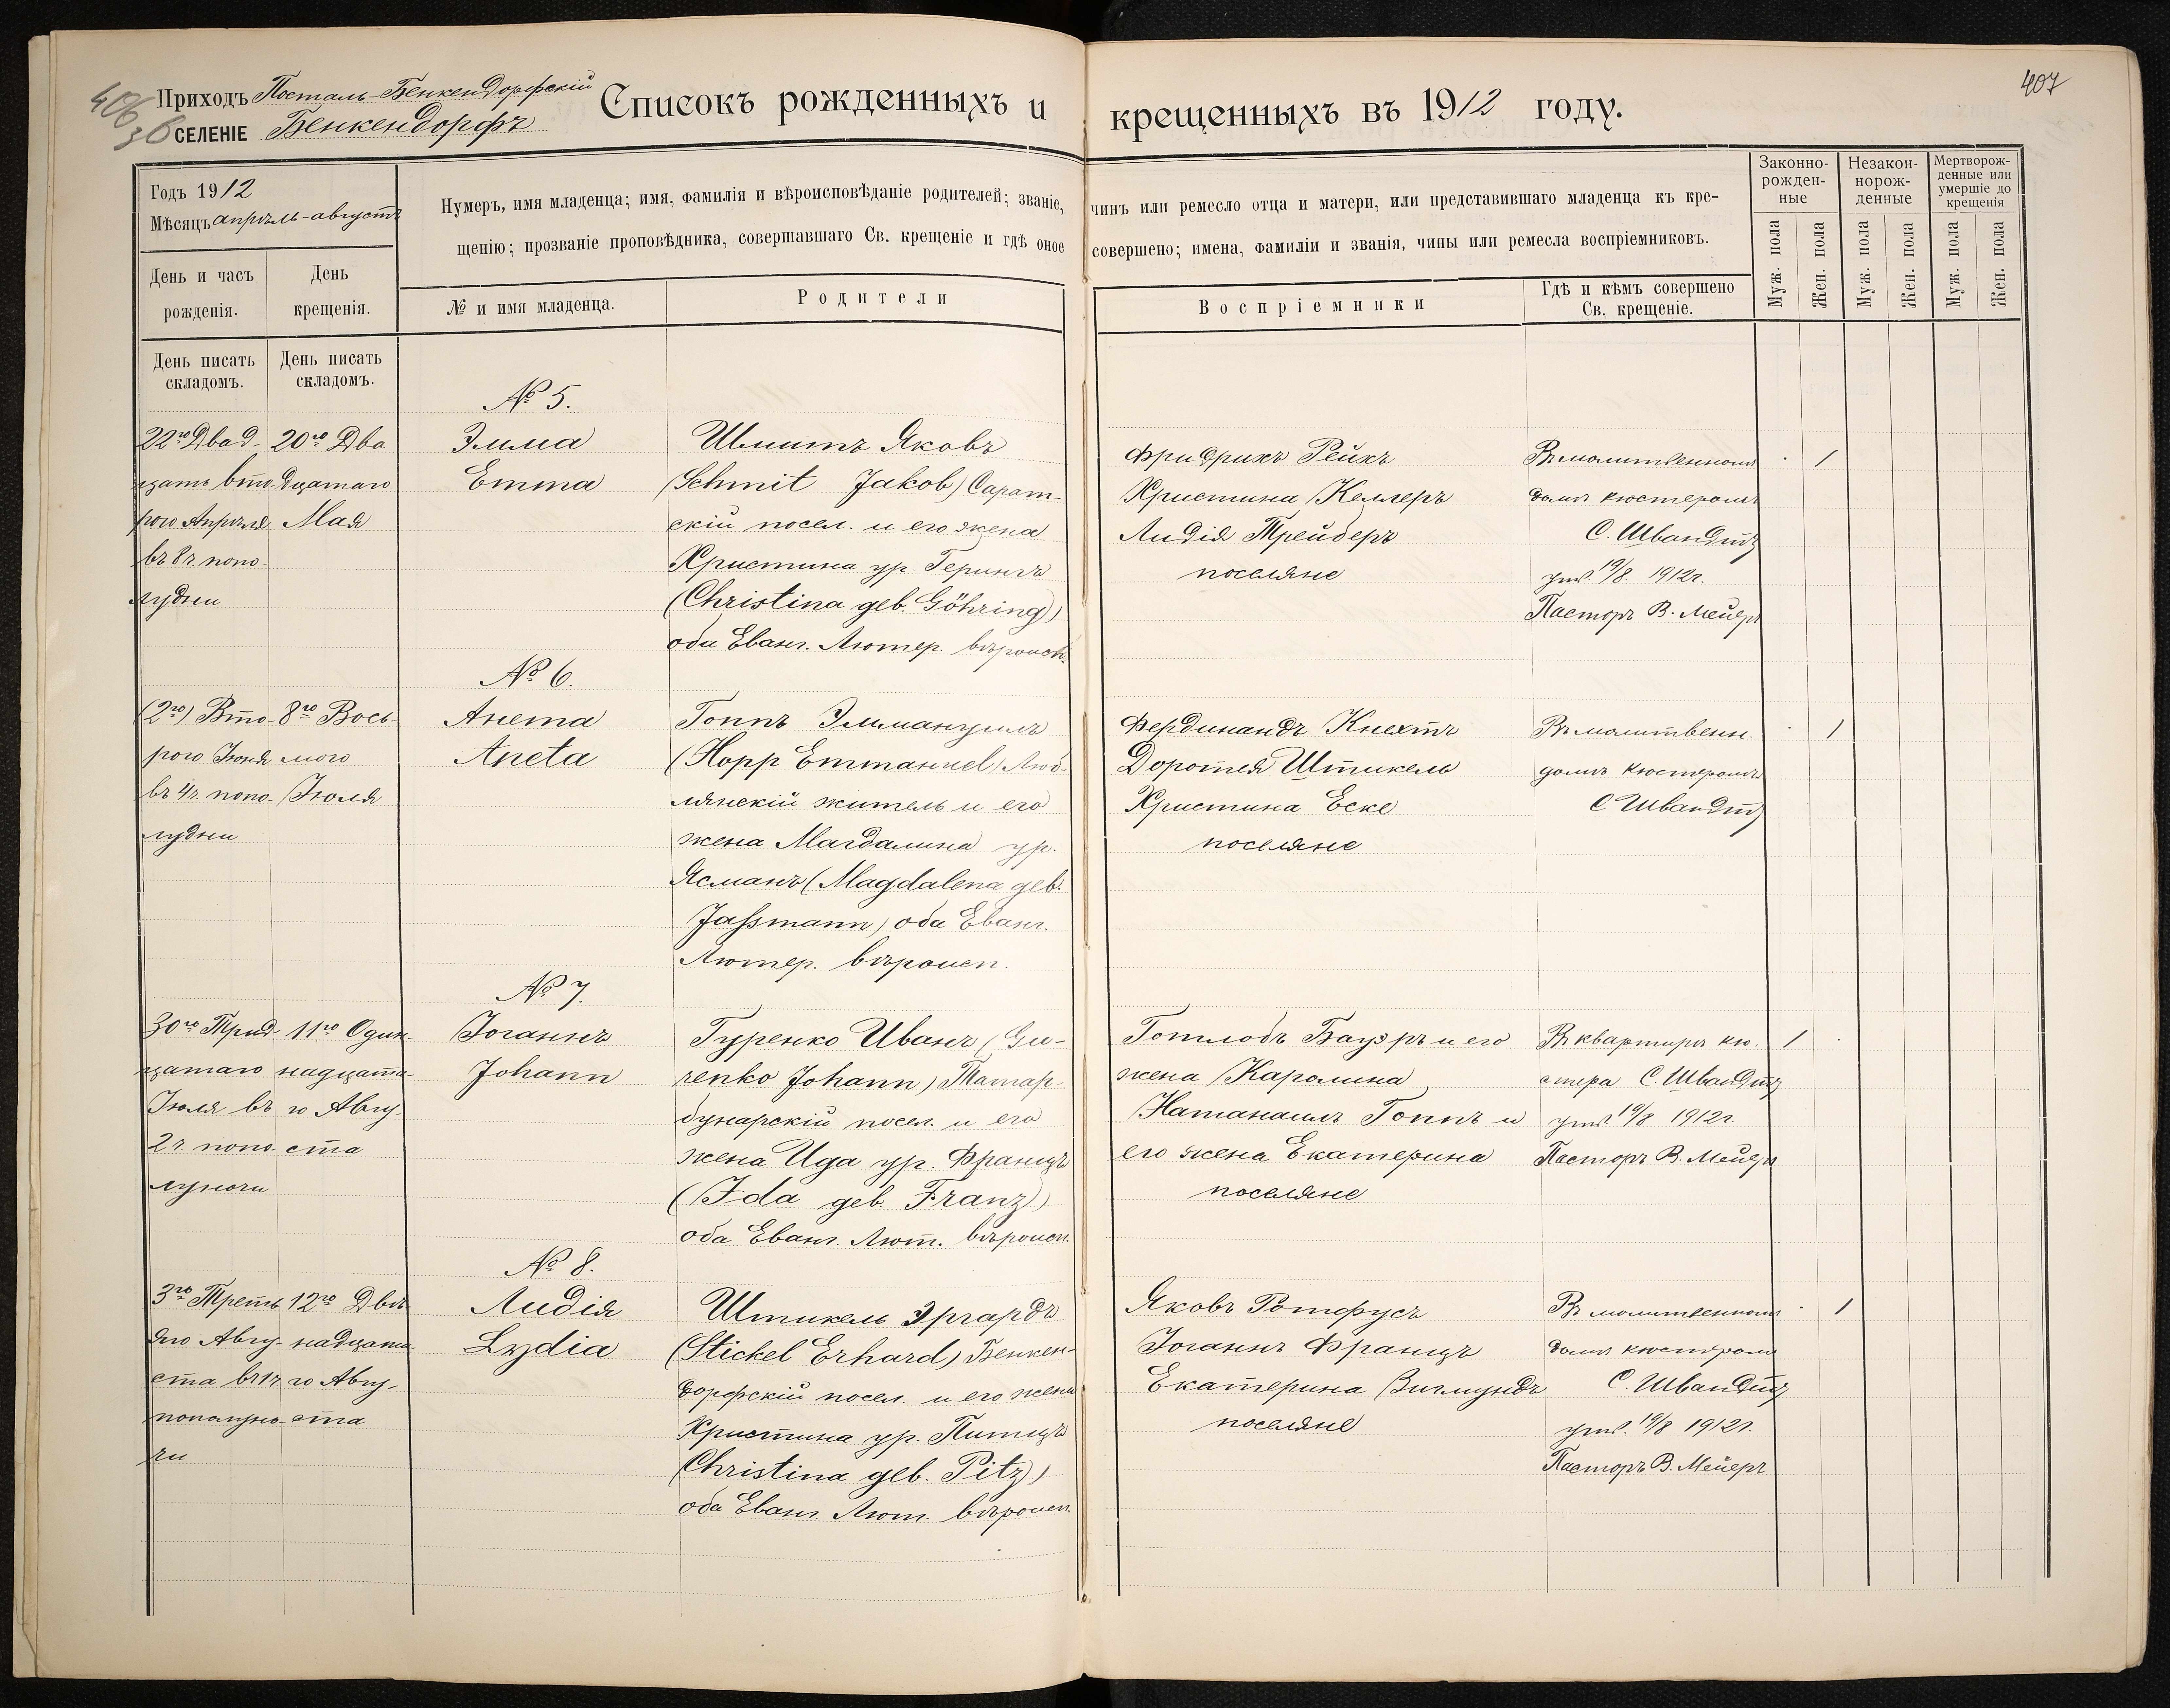 406
407
Приходъ Посталь-Бенкендорфскій
36
СЕЛЕНІЕ Бенкендорфъ
Списокъ рожденныхъ и крещенныхъ въ 1912 году.
Годъ 1912
Мѣсяцъ апрѣль-августъ
Нумеръ, имя младенца; имя, фамилія и вѣроисповѣданіе родителей; званіе, чинъ или ремесло отца и матери, или представившаго младенца къ кре-
щенію; прозваніе проповѣдника, совершавшаго Св. крещеніе и гдѣ оное совершено; имена, фамиліи и званія, чины или ремесла воспріемниковъ.
Законно-
рожден-
ные
Незакон-
норож-
денные
Мертворож-
денные или
умершіе до
крещенія
Муж. пола
Жен. пола
Муж. пола
Жен. пола
Муж. пола
Жен. пола
День и часъ
рожденія.
День
крещенія.
№ и имя младенца.
Родители
Воспріемники
Гдѣ и кѣмъ совершено
Св. крещеніе.
День писать
складомъ.
День писать
складомъ.
№ 5.
22го Двад-
цать вто-
рого Апрѣля
въ 8 ч. попо-
лудни
20го Два
дцатаго
Мая
Эмма
Emma
Шмитъ Яковъ
(Schmit Jakob) Сарат-
скій посел. и его жена
Христина ур. Герингъ
(Christina geb. Göhring)
оба Еванг. Лютер. вѣроисп.
Фридрихъ Рейхъ
Христина Келлеръ
Лидія Трейберъ
поселяне
Въ молитвенномъ
домѣ кюстеромъ
С. Швандтъ
19/8 1912 г.
Пасторъ В. Мейеръ
1
№ 6.
(2го) Вто-
рого Іюня
въ 4 ч. попо-
лудни
8го Вось-
мого
Іюля
Анета
Aneta
Гоппъ Эммануилъ
(Hopp Emmanuel) Люб-
лянскій житель и его
жена Магдалина ур.
Ясманъ (Magdalena geb.
Jaßmann) оба Еванг.
Лютер. вѣроисп.
Фердинандъ Кнехтъ
Доротея Штикель
Христина Еске
поселяне
Въ молитвенн.
домѣ кюстеромъ
С Швандтъ
1
№ 7.
30го Трид-
цатаго
Іюля въ
2 ч. попо-
луночи
11го Один-
надцата-
го Авгу-
ста
Іоганнъ
Johann
Гуренко Иванъ (Gu-
renko Johann) Татар-
бунарскій посел. и его
жена Ида ур. Францъ
(Ida geb. Franz)
оба Еванг. Лют. вѣроисп.
Готлобъ Бауэръ и его
жена Каролина
Натанаилъ Гоппъ и
его жена Екатерина
поселяне
Въ квартирѣ кю-
стера С. Швандтъ
19/8 1912 г.
Пасторъ В. Мейеръ
1
№ 8.
3го Треть-
яго Авгу-
ста въ 1 ч.
пополуно-
чи
12го Двѣ-
надцата-
го Авгу-
ста
Лидія
Lydia
Штикель Эргардъ
(Stickel Erhard) Бенкен-
дорфскій посел. и его жена
Христина ур. Питцъ
(Christina geb. Pitz)
оба Еванг. Лют. вѣроисп.
Яковъ Ротфусъ
Іоганнъ Францъ
Екатерина Зигмундъ
поселяне
Въ молитвенномъ
домѣ кюстеромъ
С. Швандтъ
19/8 1912 г.
Пасторъ В. Мейеръ
1